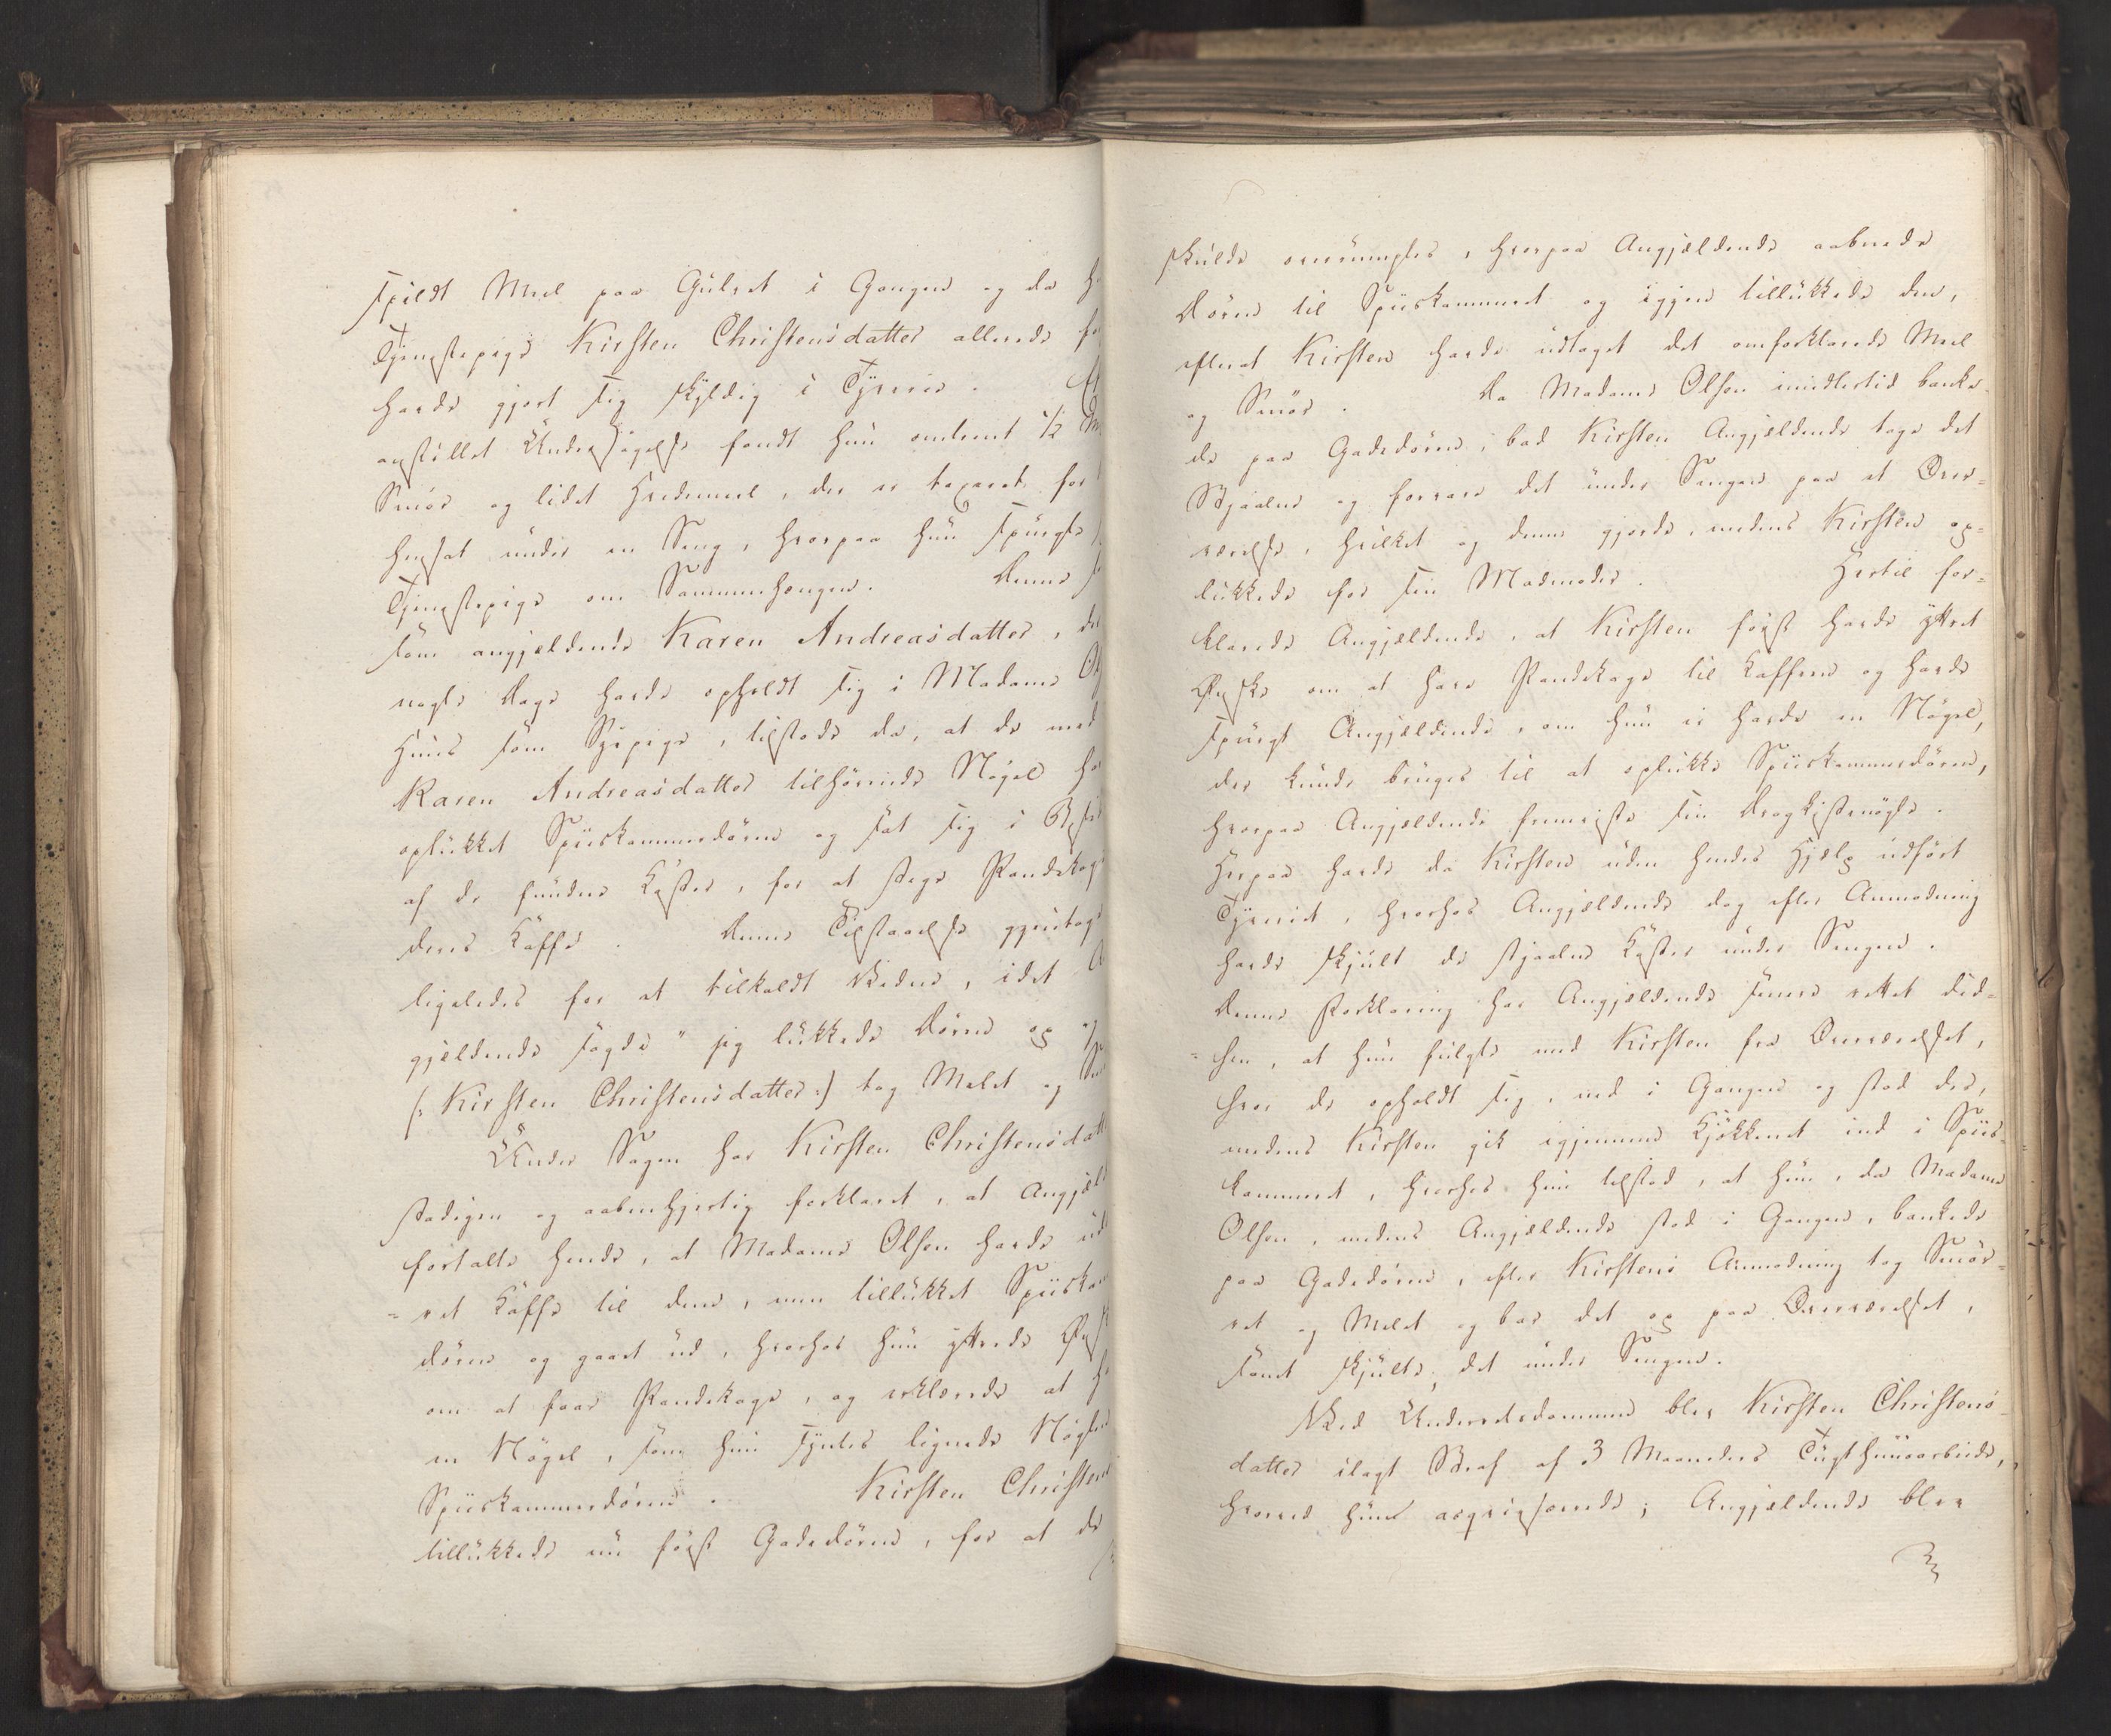 spildt Meel paa Gulvet i Gangen og da h
Tjenestepige Kirsten Christensdatter allerede fo
havde gjort sig skyldig i Tyverie. Ef
anstillet Undersøgelse fandt hun omtrent 1/2 M
Smør og lidt Hvedemeel, der er taxeret for
hensat under en Seng, hvorpaa hun spurgte
Tjenestepige om Sammenhængen. Denne
som angjældende Karen Andreasdatter, der
nogle Dage havde opholdt sig i Madame Ol
Huus som Syepige, tilstode da, at de med
Karen Andreasdatter tilhørende Nøgel ha
oplukket Spiiskammerdøren og sat sig i Besid
af de fundne Koster, for at stege Pandekage
deres Kaffe. Denne Tilstaaelse gjentoge
ligeledes for at tilkaldt Vidne, idet A
gjældende sagde "jeg lukkede Døren op og
(: Kirsten Christensdatter:) tog Melet og Sm
Under Sagen har Kirsten Christensdatt
stadigen og aabenhjertig forklaret, at Angjæld
fortalte hende, at Madame Olsen havde ud
= vet Kaffe til dem, men tillukket Spiiskam
døren og gaaet ud, hvorhos hun yttrede Ønsk
om at faae Pandekage, og erklærede at h
en Nøgel, som hun syntes lignede Nøglen
Spiiskammerdøren. Kirsten Christens
tillukkede nu først Gadedøren, for at de
skulde overrumples, hvorpaa Angjældende aabnede
Døren til Spiiskammeret og igjen tillukkede den,
efterat Kirsten havde udtaget det omforklarede Meel
og Smør. Da Madame Olsen imidlertid banke-
de paa Gadedøren, bad Kirsten Angjældende tage det
Stjaalne og forvare det under Sengen paa et Over=
værelse, hvilket og denne gjorde, medens Kirsten op=
lukkede for sin Madmoder. Hertil for=
klarede Angjældende, at Kirsten først havde yttret
Ønske om at have Pandekage til Kaffeen og havde
spurgt Angjældende, om hun ei havde en Nøgel,
der kunde bruges til at oplukke Spiiskammerdøren,
hvorpaa Angjældende fremviste sin Dragkistenøgle.
Herpaa havde da Kirsten uden hendes Hjælp udført
Tyveriet, hvorhos Angjældende dog efter Anmodning
havde skjult de stjaalne Koster under Sengen.
Denne Forklaring har Angjældende senere rettet did=
= hen, at hun fulgte med Kirsten fra Overværelset,
hvor de opholdt sig, ned i Gangen og stod der,
medens Kirsten gik igjennem Kjøkkenet ind i Spiis-
kammeret, hvorhos hun tilstod, at hun, da Madame
Olsen, medens Angjældende stod i Gangen, bankede
paa Gadedøren, efter Kirstens Anmodning tog Smør=
ret og Melet og bar det op paa Overværelset,
samt skjulte det under Sengen.
Ved Underretsdommen blev Kirsten Christens-
datter ilagt Straf af 3 Maaneders Tugthuusarbeide,
hvorved hun acqviescerede; Angjældende blev